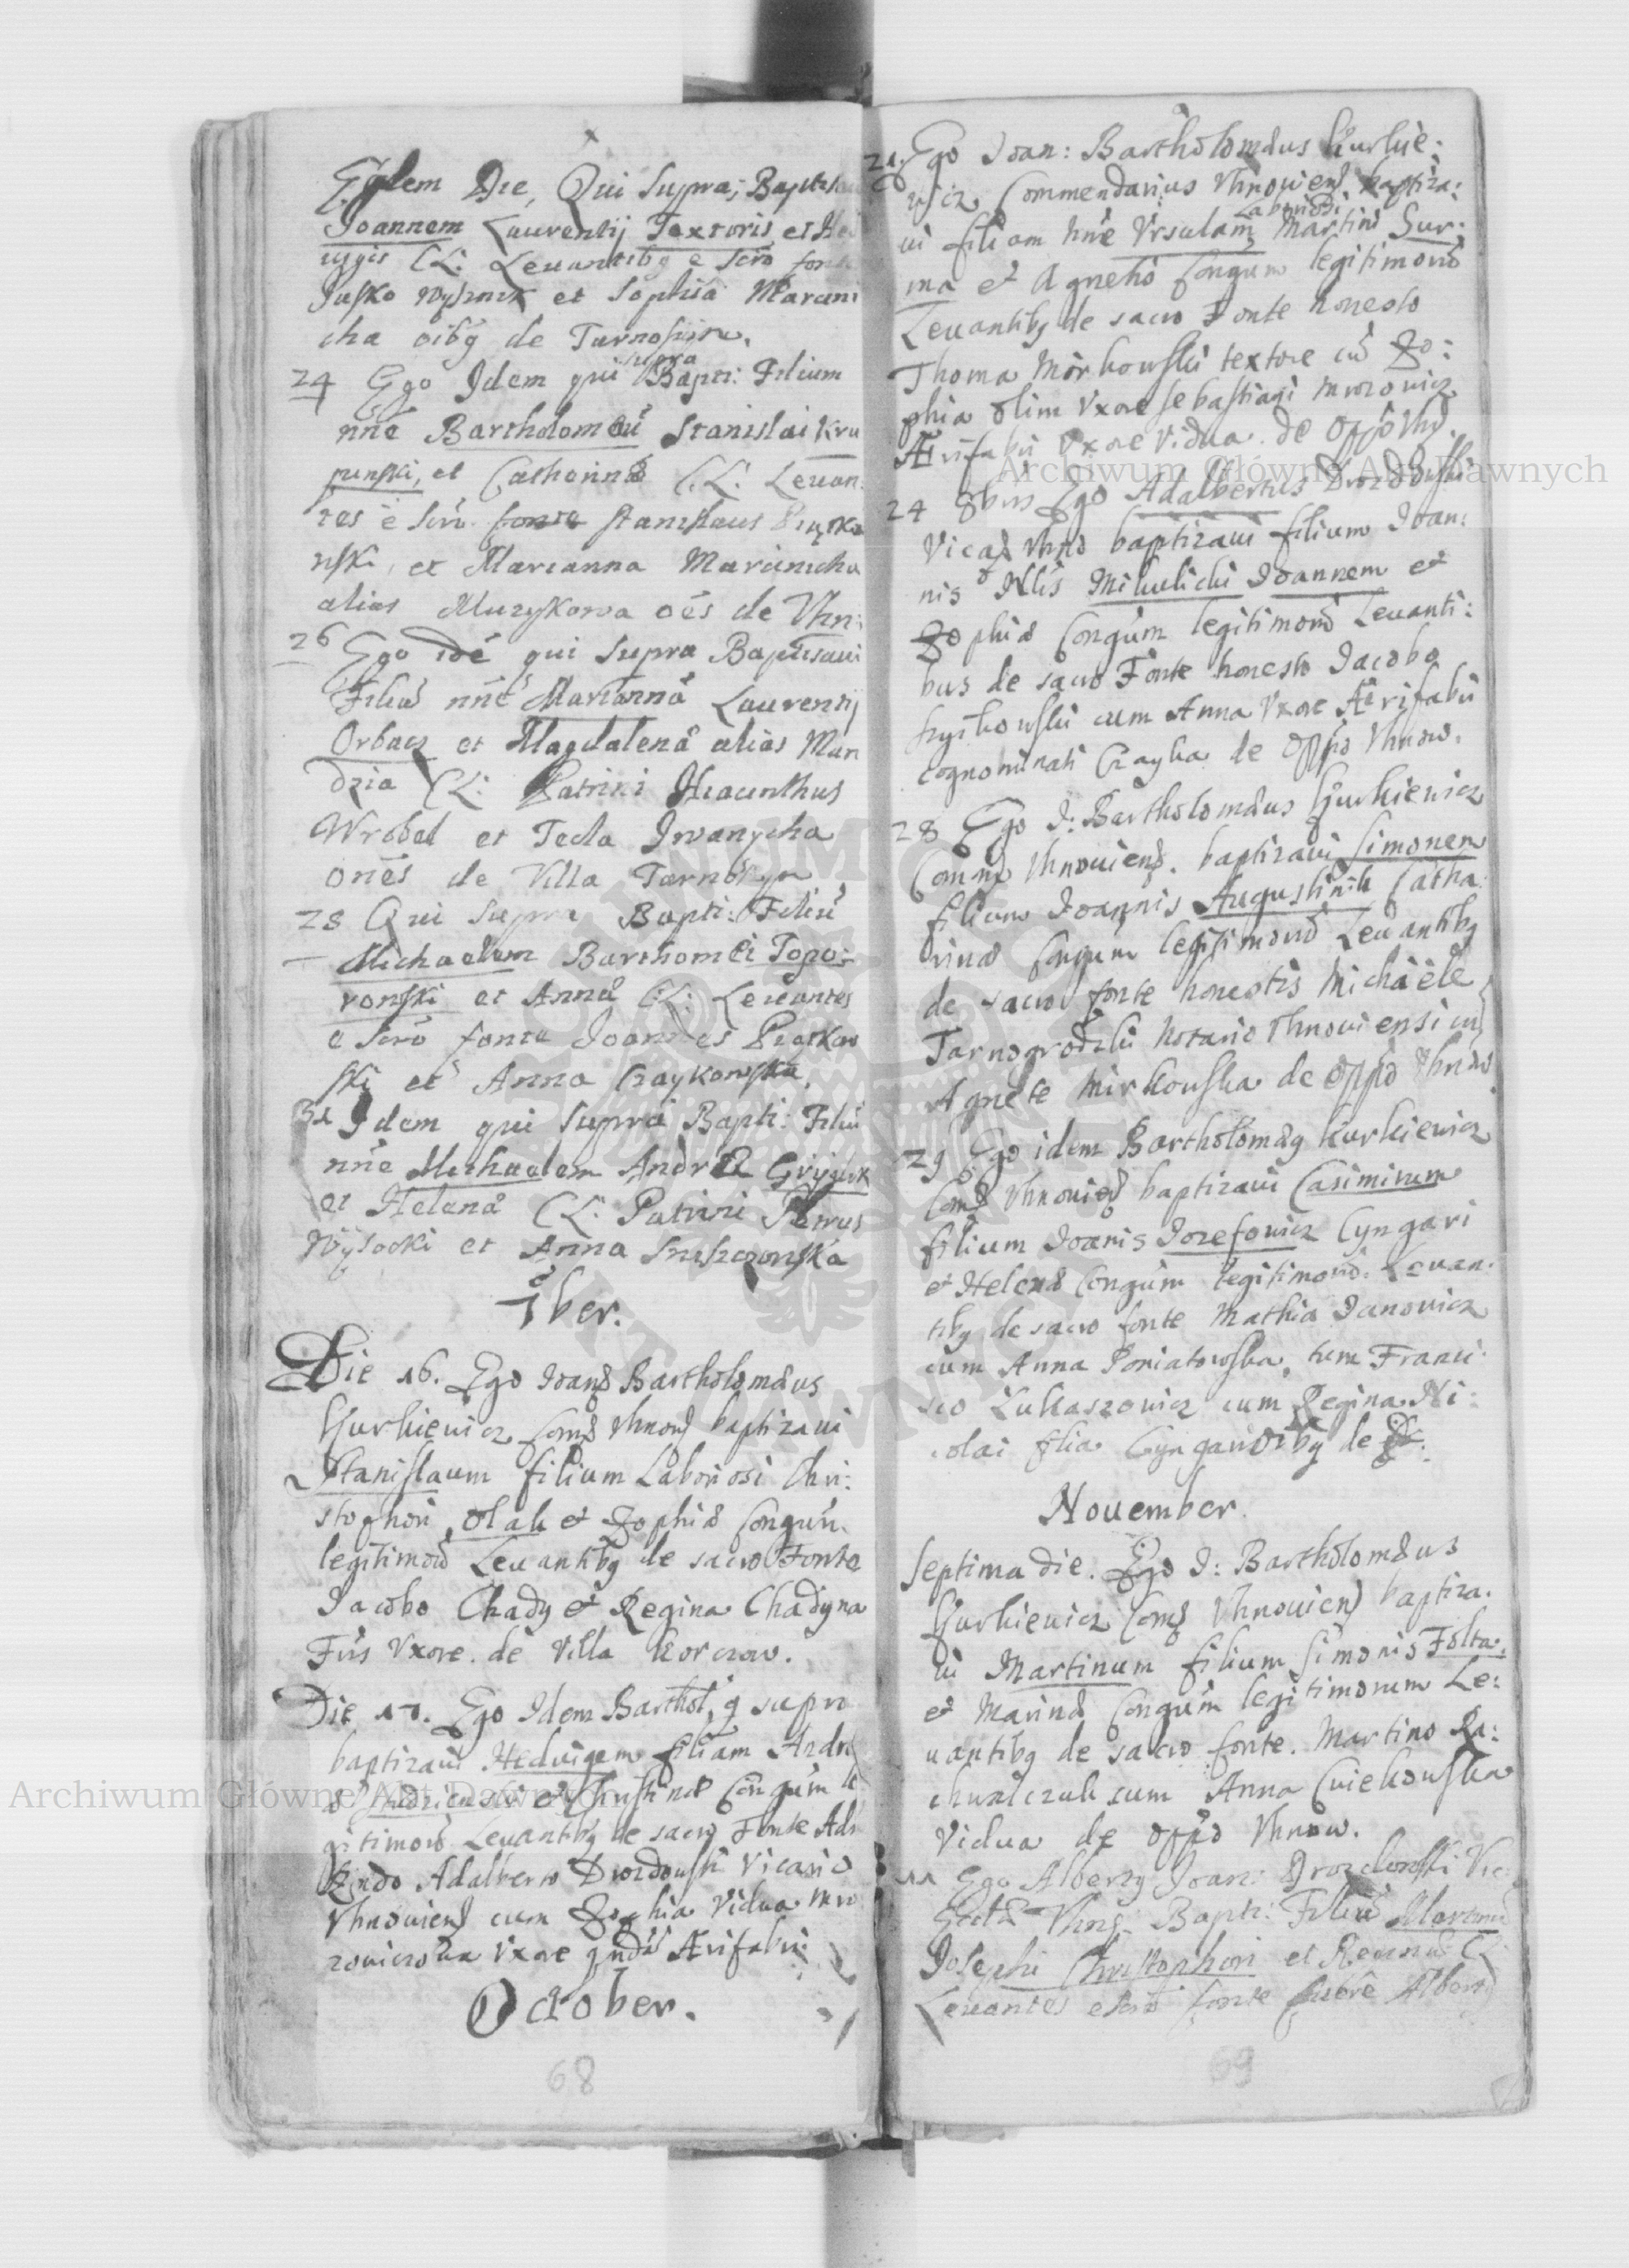 Eodem Die, Qui Supra, Baptisaui
Joannem Laurentij Textoris et Hed
uigis CL: Leuantibq e Scrō fonte
Jusko et Sophia Marcini
cha oibq de Tarnoszyn.
24 Ego Idem qui supra Bapti: Filium
nñe Bartholomeū Stanislai Kru
pinski, et Catharinæ C.L: Leuan
tes è Scrō fonte Stanislaus Piątko
wski, et Marianna Marcinicha
alias Muzykowa oēs de Vhn:
26 Ego idē qui Supra Baptisaui
Filiā nñe Mariannā Laurentij
Orbacz et Magdalenæ alias Man
dzia CL: Patrini Hiacinthus
Wrobel et Tecla Iwanycha
omēs de Villa Tarnoszyn
28 Qui Supra Bapti: Filiū
Michaelem Barthomei Topo-
rowski et Annæ C:L: Leuantes
e Scrō fonte Joannes Piątkow
ski et Anna Czaykowska.
31 Idem qui Supra Bapti: Filiū
nñe Michaelem Andreæ
et Helenæ CL: Patrini Petrus
Wysocki et Anna
7ber.
Die 16. Ego Joans Bartholomæus
Gurkiewicz Coms Vhnows baptizaui
Stanislaum filium Laboriosi Chri:
stophori Olak et Zophiæ Congum.
legitimorū Leuantibq de sacro Fonte
Jacobo Chady et Regina Chadyna
Eius Vxore. de Villa Korczow.
Die 17. Ego Idem Barthol, q supra
baptizaui Heduigem filiam Andreæ
et Christinæ Congum le
gitimorū Leuantibq de sacro Fonte Adm
Rṉdo Adalberto Drozdowski Vicario
Vhnouiens cum Zophia Vidua Mro
zowiczowa Vxore qndā Aurifabri
October.
68
21. Ego Joan: Bartholomæus Gurkie:
wicz Commendarius Vhnouiens baptiza:
ui filiam nñe Vrsulam Laboriosi Martini Sur:
ma et Agnetis Congum legitimorū
Leuantibq de sacro Fonte honesto
Thoma Mirkowski textore cū Zo:
phia olim Vxore Sebastiani Mrozowicz
Aurifabri Vxore Vidua. de Oppō Vhn.
24 8bris Ego Adalbertus Drozdowski
Vicaṟ Vhnō baptizaui filium Joan:
nis Nlis Mikulicki Joannem et
Zophiæ Congum legitimorū Leuanti:
bus de sacro Fonte honesto Jacobo
cum Anna Vxore Aurifabri
cognominati Czayka de Oppō Vhnow.
28 Ego J: Bartholomæus Gurkiewicz
Coms Vhnouiens. baptizaui Simonem
filium Joannis Augustinik Catha
rinæ Congum legitimorū Leuantibq
de sacro fonte honestis Michaële
Tarnogrodzki Notario Vhnouiensi cū
Agnete Mirkowska de Oppō Vhnow.
29 Ego idem Bartholomæq Kurkiewicz
Coms Vhnouies baptizaui Casimirum
filium Joānis Jozefowicz Cyngari
et Helenæ Congum legitimorū. Leuan:
tibq de sacro fonte Mathia Janowicz
cum Anna Poniatowska, tum Franci:
sco Łukaszowicz cum Regina Ni:
colai filia Cyngari oibq de
November.
Septima die. Ego J: Bartholomæus
Gurkiewicz Coms Vhnouiens baptiza:
ui Martinum filium Simonis Folta.
et Marinæ Congum legitimorum Le:
uantibq de sacro fonte. Martino Ra:
chwalczuk cum Anna Cwiekowska
Vidua de Oppō Vhnow.
11 Ego Alberty Joan: Drozdowski Vic
Eccle Vhns Bapti: Filiū Martinū
Josephi Christophori et CL:
Leuantes e Scrō fonte Alberty